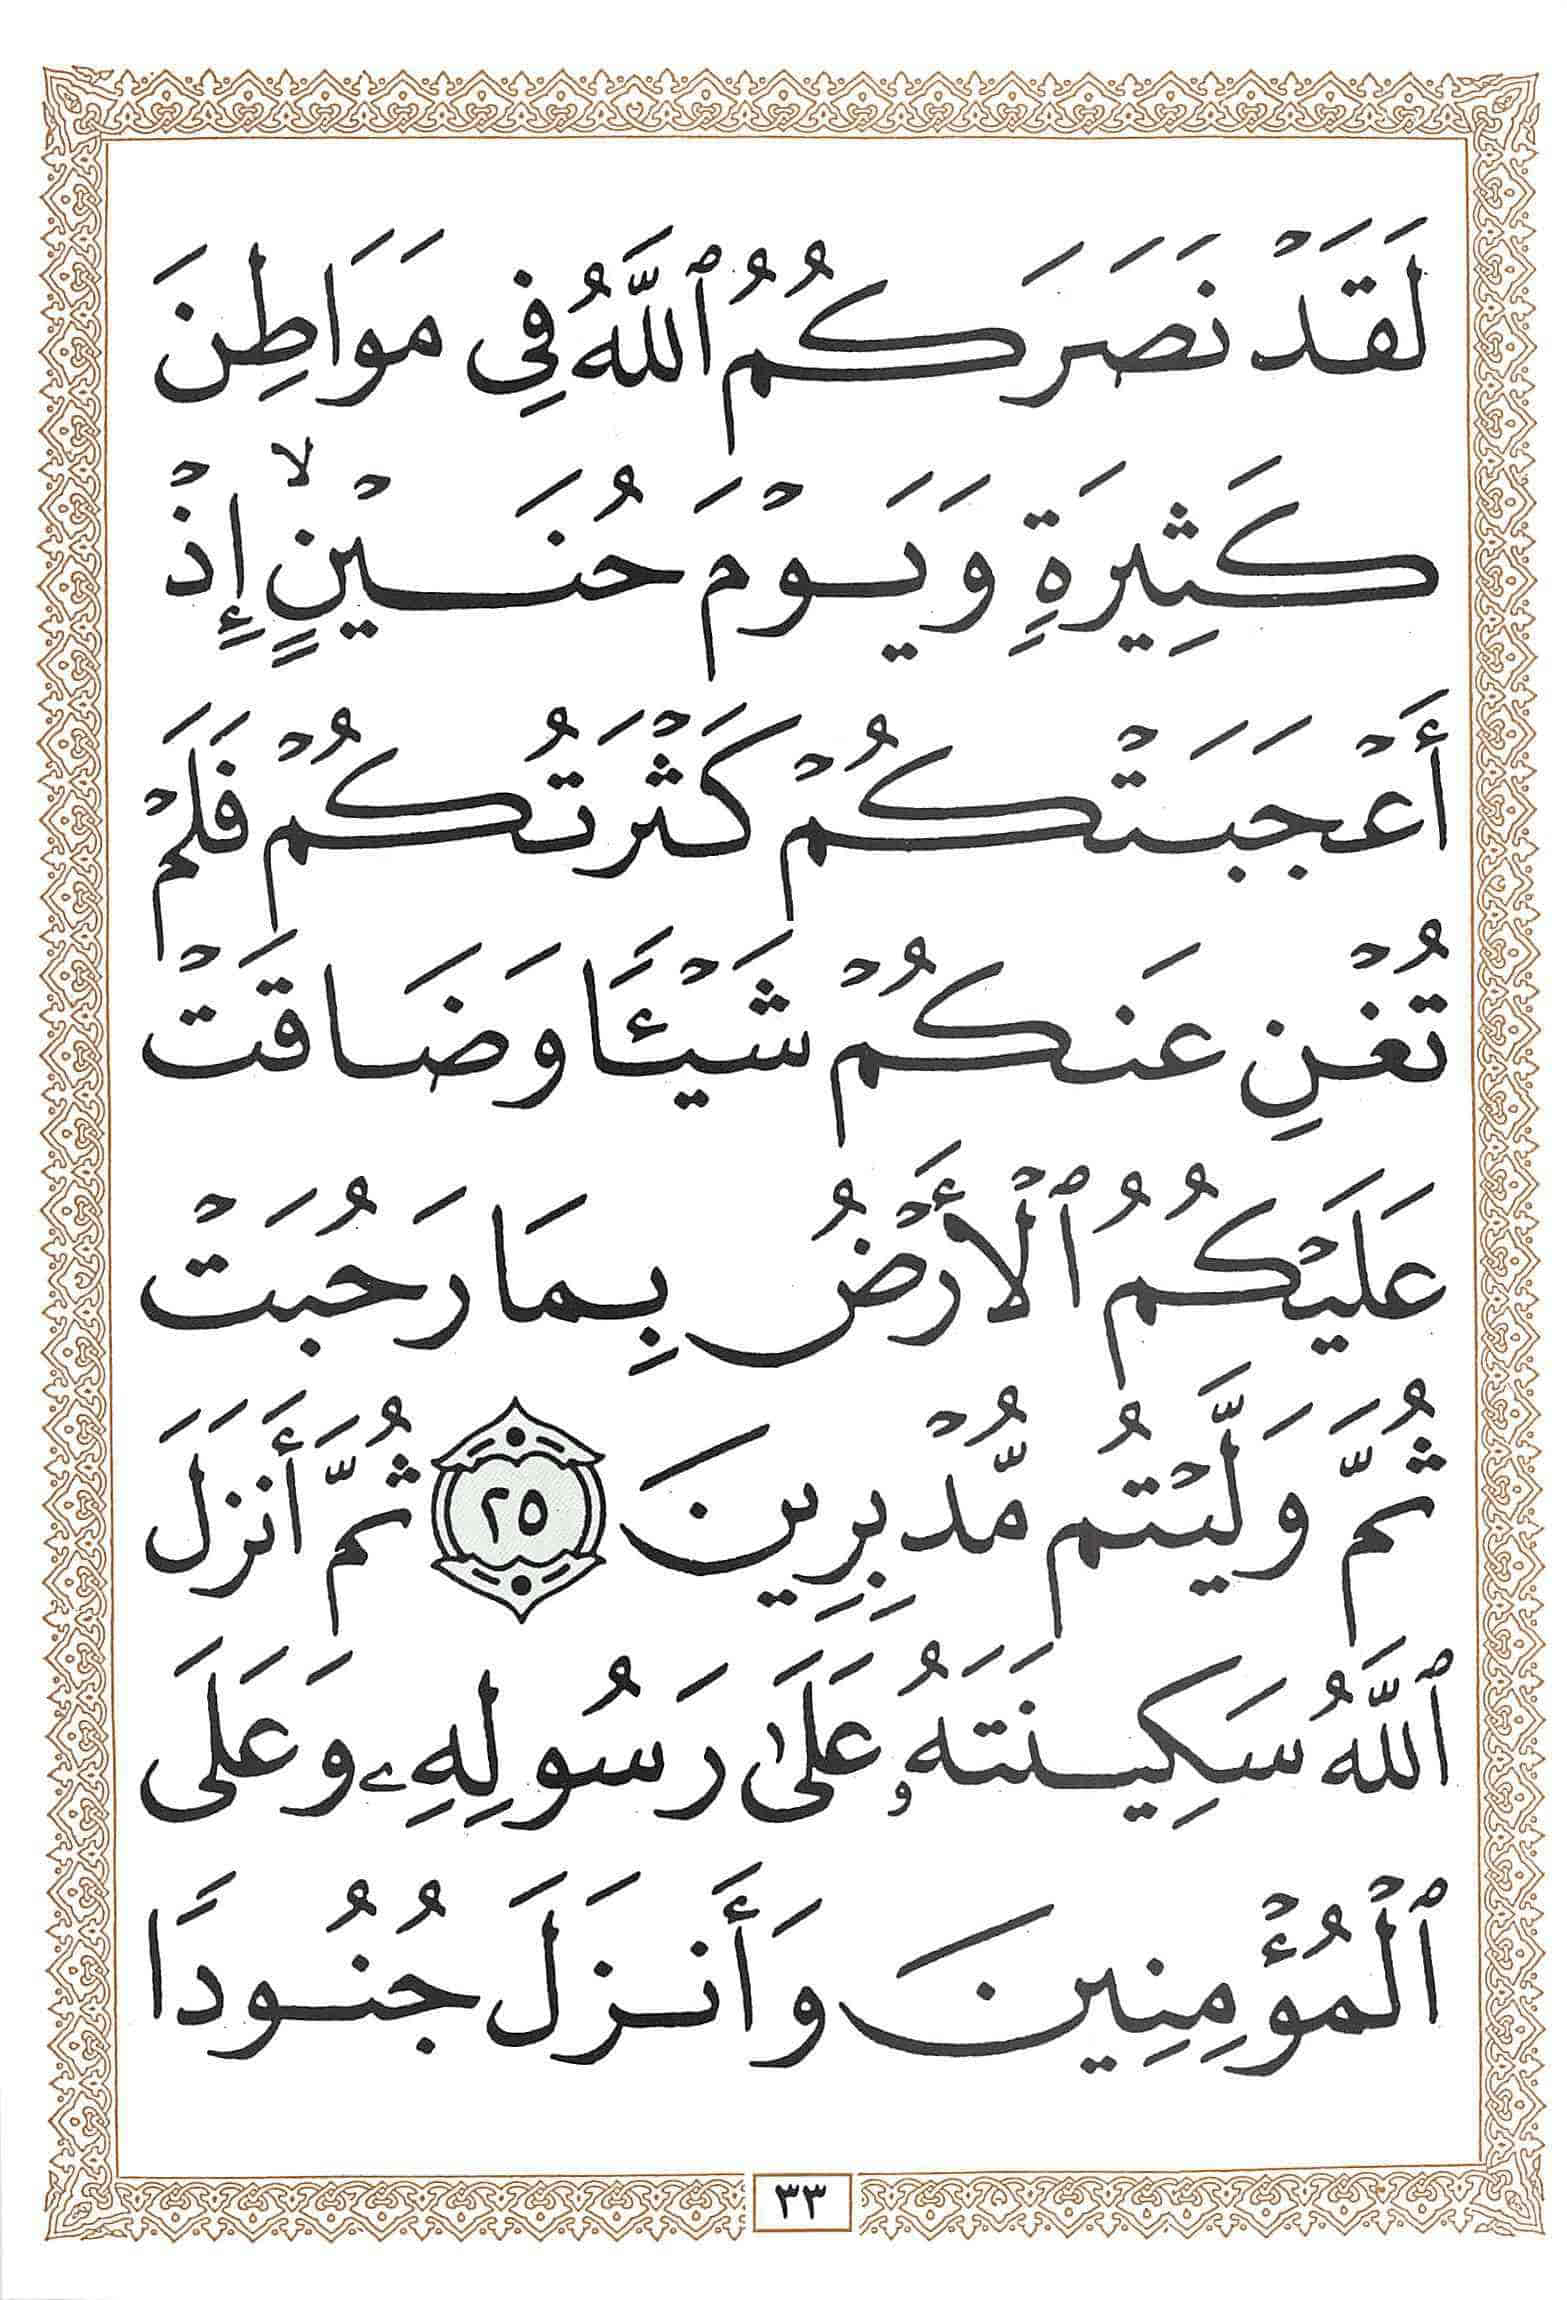 لَقَدْ نَصَرَكُمُ ٱللَّهُ فِى مَوَاطِنَ
كَثِيرَةٍ وَيَوْمَ حُنَيْنٍ ۙ إِذْ
أَعْجَبَتْكُمْ كَثْرَتُكُمْ فَلَمْ
تُغْنِ عَنكُمْ شَيْـًٔا وَضَاقَتْ
عَلَيْكُمُ ٱلْأَرْضُ بِمَا رَحُبَتْ
ثُمَّ وَلَّيْتُم مُّدْبِرِينَ ٢٥ ثُمَّ أَنزَلَ
ٱللَّهُ سَكِينَتَهُۥ عَلَىٰ رَسُولِهِۦ وَعَلَى
ٱلْمُؤْمِنِينَ وَأَنزَلَ جُنُودًا
٣٣